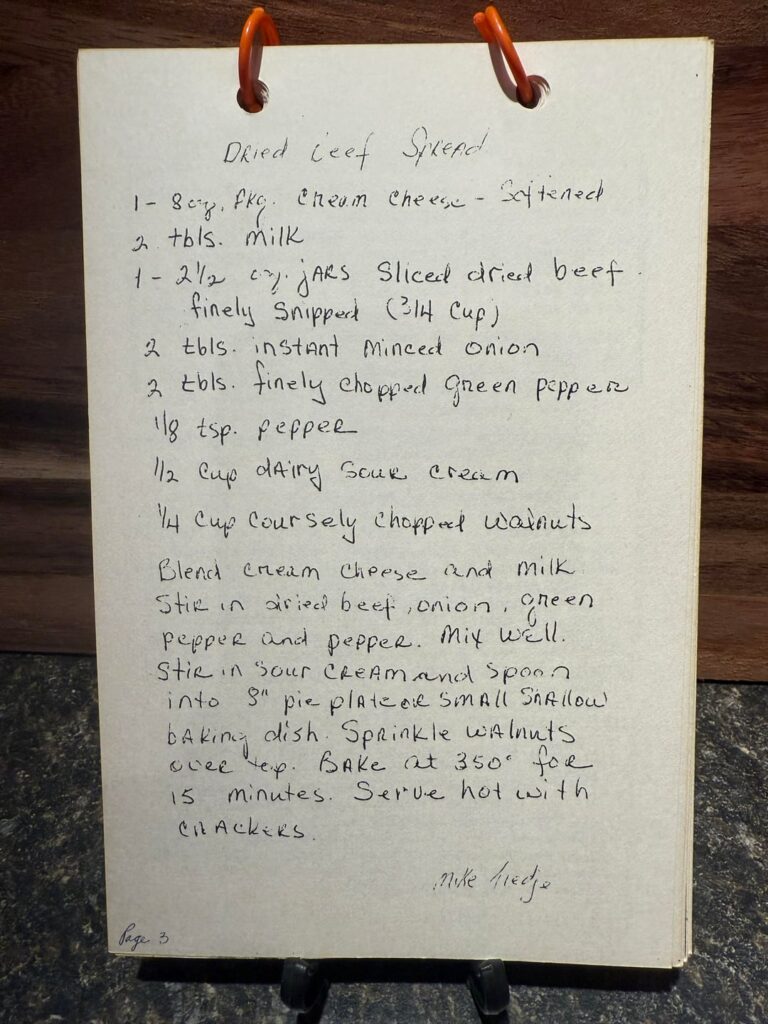 Dried beef Spread
1 - 8 oz. pkg. cream cheese - Softened
2 tbls. milk
1 - 2 1/2 oz. jars sliced dried beef
finely snipped (3/4 cup)
2 tbls. instant minced onion
2 tbls. finely chopped green pepper
1/8 tsp. pepper
1/2 cup dairy sour cream
1/4 cup coursely chopped walnuts
Blend cream cheese and milk
Stir in dried beef, onion, green
pepper and pepper. Mix well.
Stir in sour cream and spoon
into 8" pie plate or small shallow
baking dish. Sprinkle walnuts
over top. Bake at 350° for
15 minutes. Serve hot with
crackers.
Mike
Page 3